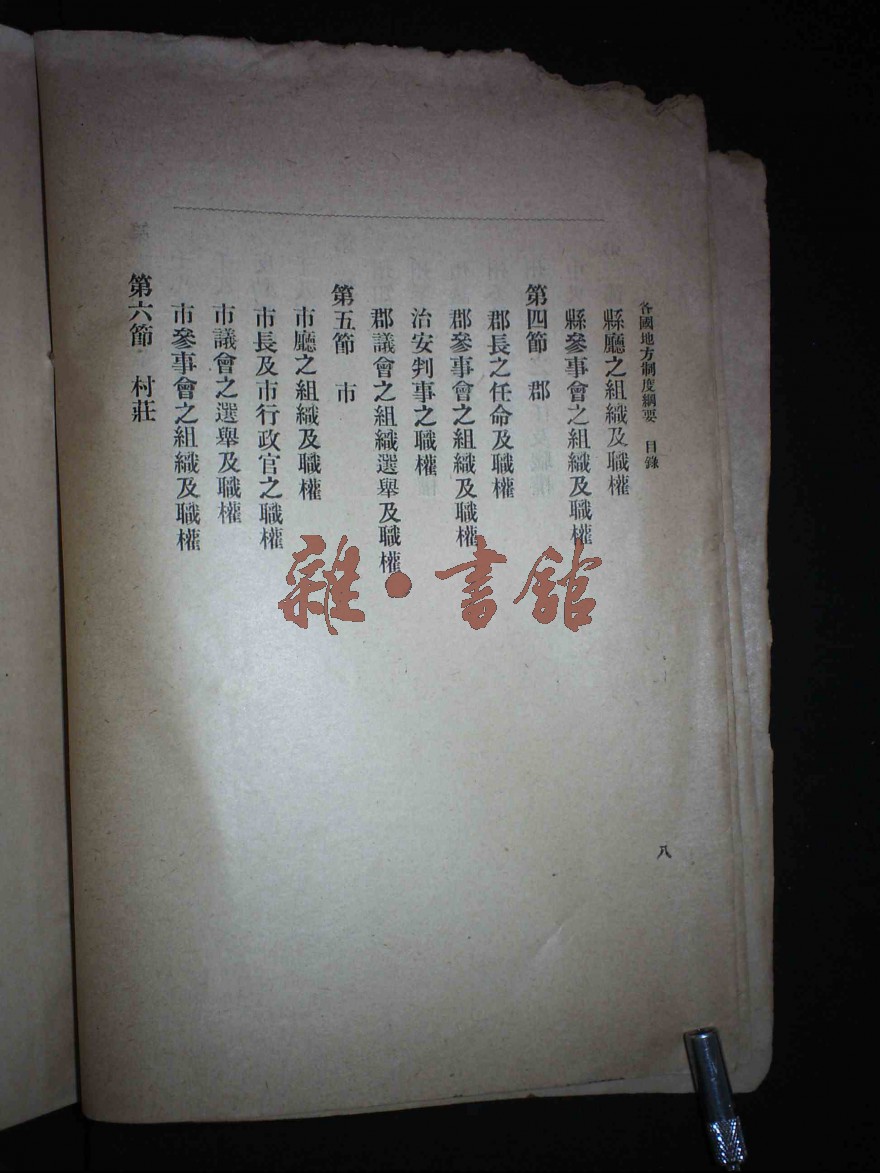 各國地方制度綱要 目錄
縣廳之組織及職權
縣參事會之組織及職權
第四節 郡
郡長之任命及職權
郡參事會之組織及職權
治安判事之職權
郡議會之組織選舉及職權
第五節 市
市廳之組織及職權
市長及市行政官之職權
市議會之選舉及職權
市參事會之組織及職權
第六節 村莊
八
雜·書館